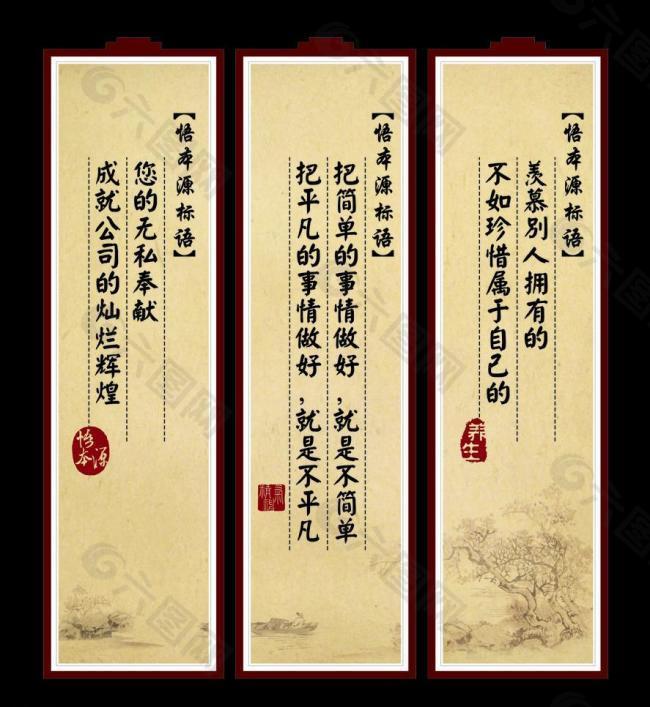 【悟本源标语】
您的无私奉献
成就公司的灿烂辉煌
悟本源
【悟本源标语】
把简单的事情做好,就是不简单
把平凡的事情做好,就是不平凡
【悟本源标语】
羡慕别人拥有的
不如珍惜属于自己的
养生
六图网